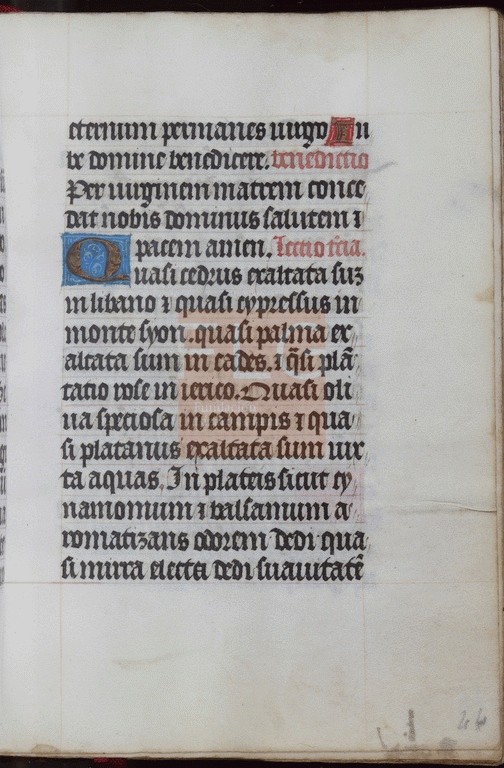 eternum permanes uirgo In
be domine benedicere. benedictio
Per uirginem matrem conce
dat nobis dominus salutem ⁊
pacem amen. Lectio t̄cia.
Quasi cedrus exaltata suʒ
in libano ⁊ quasi cypressus in
monte syon. quasi palma ex
altata sum in cades. ⁊ q̄si plā
tatio rose in ierico. Quasi oli
ua speciosa in campis ⁊ qua
si platanus exaltata sum uix
ta aquas. In plateis sicut cy
namomum ⁊ balsamum a
romatizans odorem dedi qua
si mirra electa dedi suauitatē